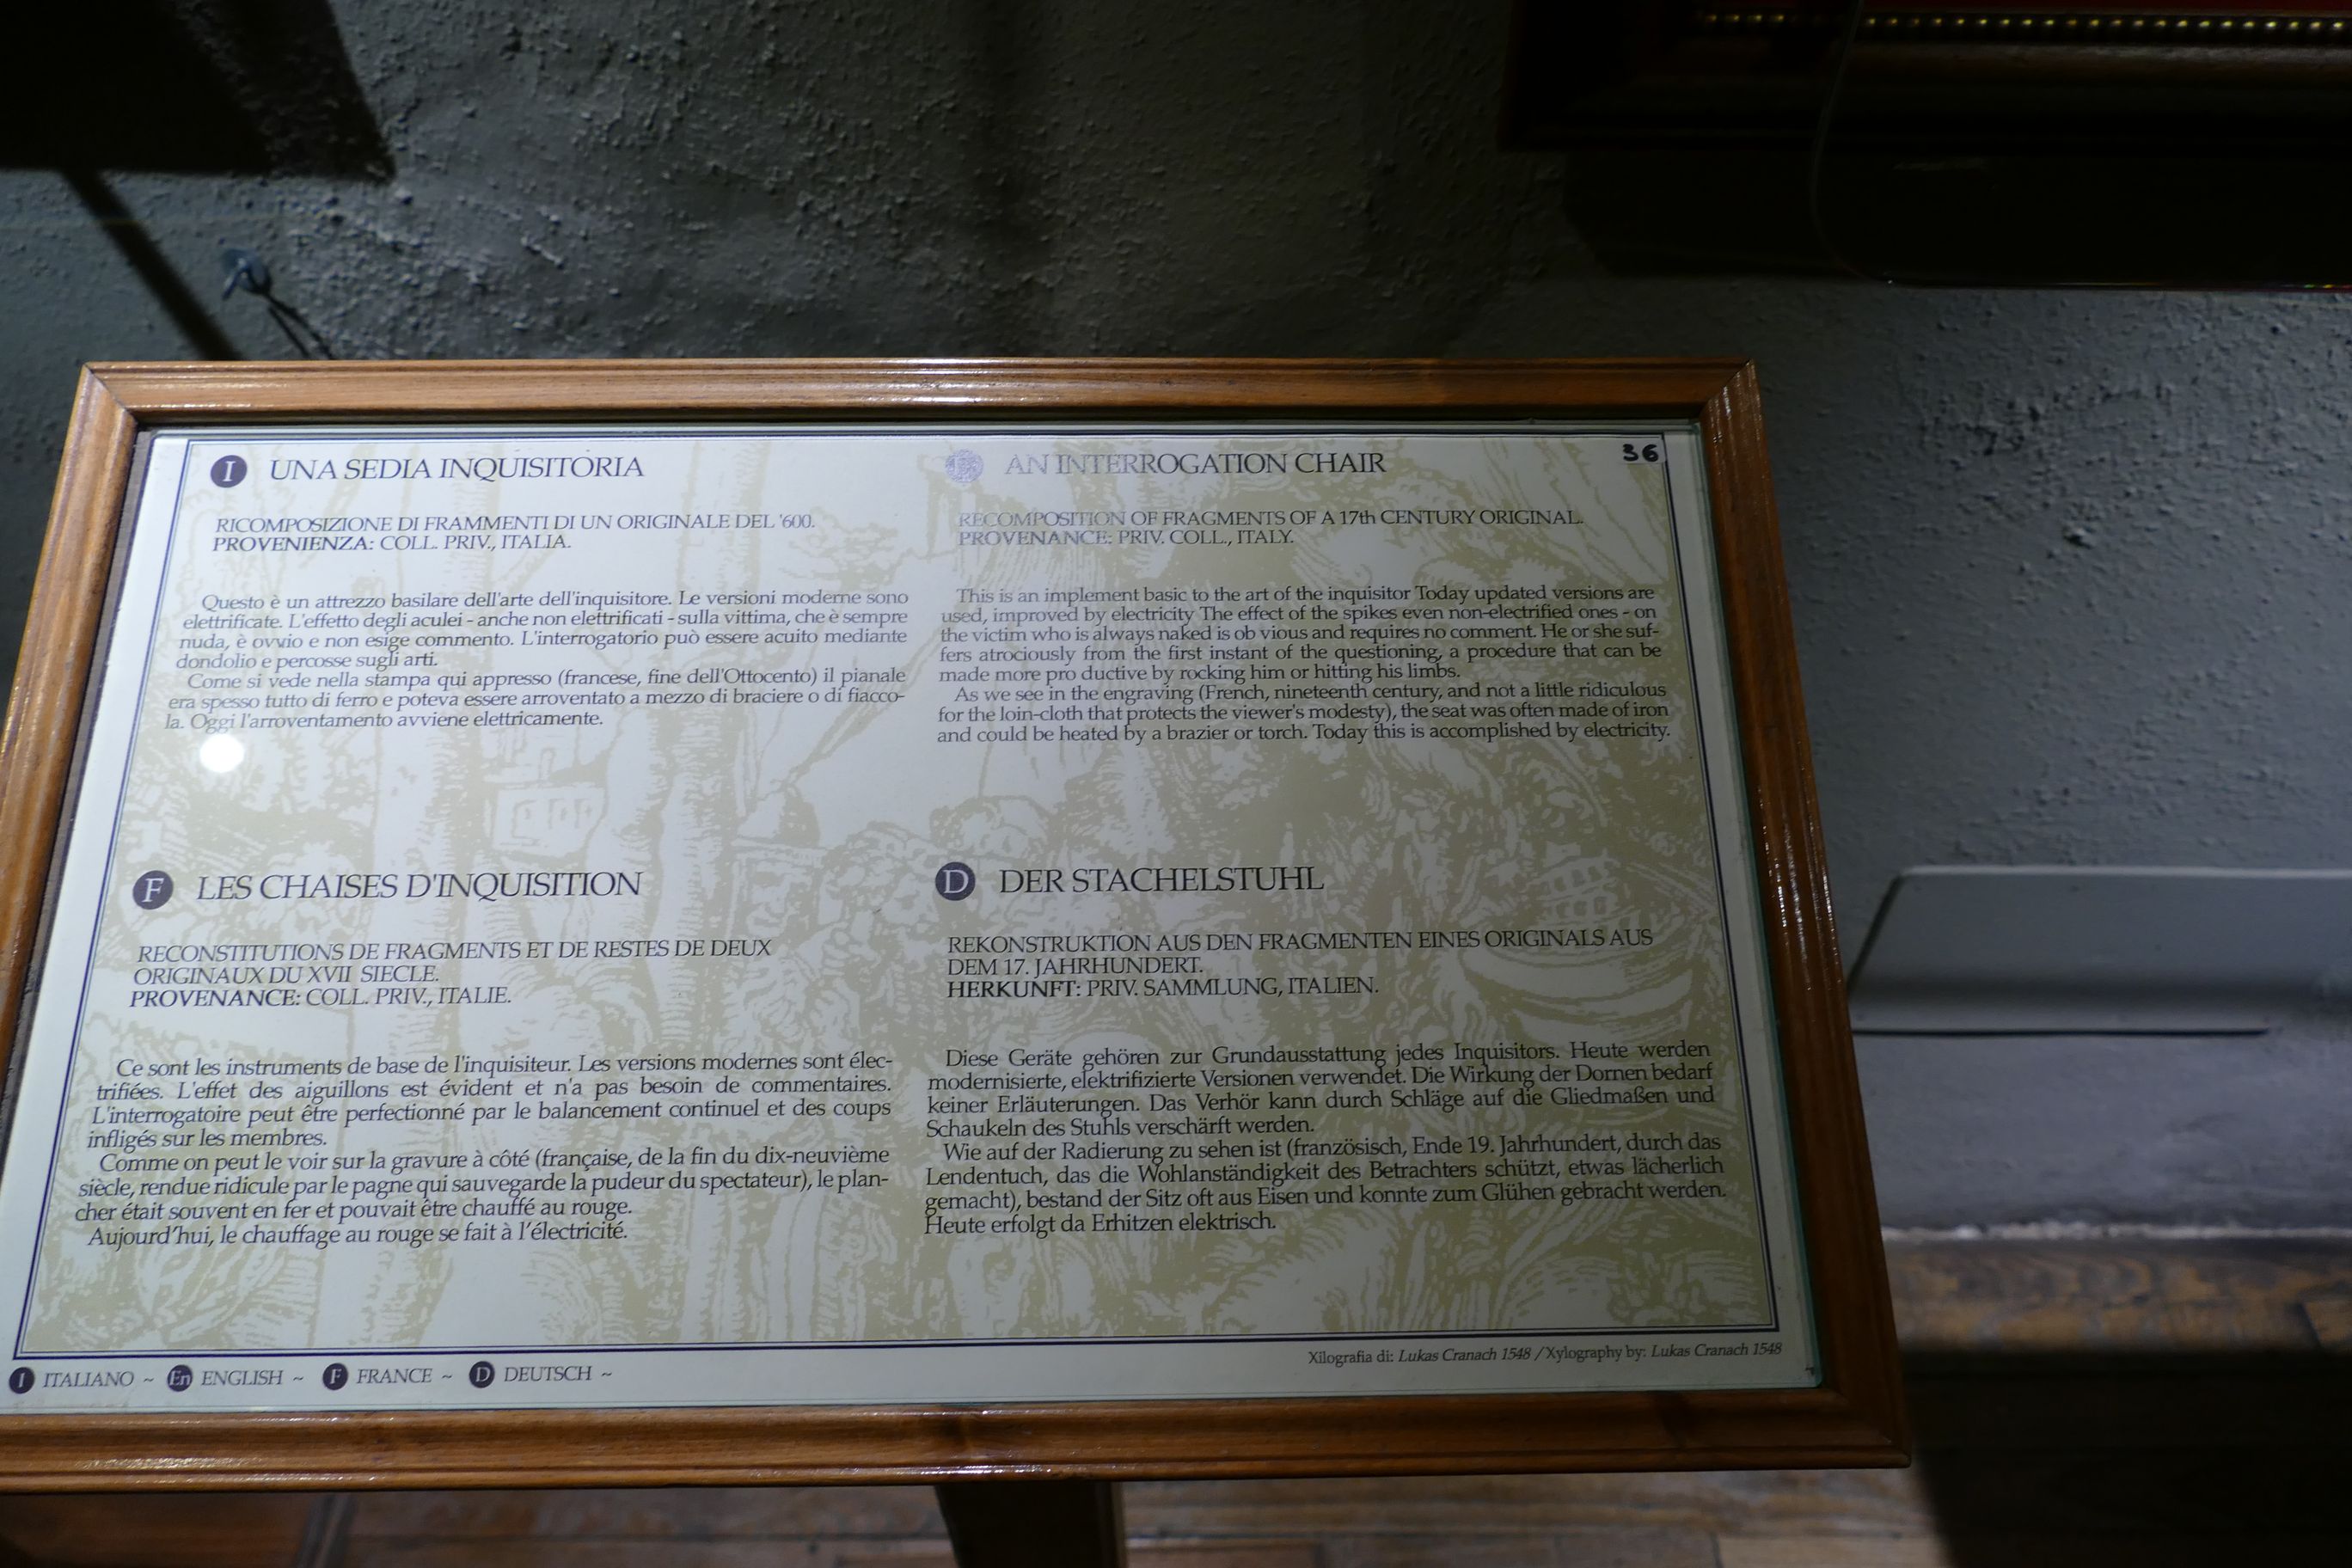 I UNA SEDIA INQUISITORIA
RICOMPOSIZIONE DI FRAMMENTI DI UN ORIGINALE DEL '600.
PROVENIENZA: COLL. PRIV., ITALIA.
Questo è un attrezzo basilare dell'arte dell'inquisitore. Le versioni moderne sono
elettrificate. L'effetto degli aculei - anche non elettrificati - sulla vittima, che è sempre
nuda, è ovvio e non esige commento. L'interrogatorio può essere acuito mediante
dondolio e percosse sugli arti.
Come si vede nella stampa qui appresso (francese, fine dell'Ottocento) il pianale
era spesso tutto di ferro e poteva essere arroventato a mezzo di braciere o di fiacco-
la. Oggi l'arroventamento avviene elettricamente.
36
En AN INTERROGATION CHAIR
RECOMPOSITION OF FRAGMENTS OF A 17th CENTURY ORIGINAL.
PROVENANCE: PRIV. COLL., ITALY.
This is an implement basic to the art of the inquisitor Today updated versions are
used, improved by electricity The effect of the spikes even non-electrified ones - on
the victim who is always naked is ob vious and requires no comment. He or she suf-
fers atrociously from the first instant of the questioning, a procedure that can be
made more pro ductive by rocking him or hitting his limbs.
As we see in the engraving (French, nineteenth century, and not a little ridiculous
for the loin-cloth that protects the viewer's modesty), the seat was often made of iron
and could be heated by a brazier or torch. Today this is accomplished by electricity.
F LES CHAISES D'INQUISITION
RECONSTITUTIONS DE FRAGMENTS ET DE RESTES DE DEUX
ORIGINAUX DU XVII SIECLE.
PROVENANCE: COLL. PRIV., ITALIE.
Ce sont les instruments de base de l'inquisiteur. Les versions modernes sont élec-
trifiées. L'effet des aiguillons est évident et n'a pas besoin de commentaires.
L'interrogatoire peut être perfectionné par le balancement continuel et des coups
infligés sur les membres.
Comme on peut le voir sur la gravure à côté (française, de la fin du dix-neuvième
siècle, rendue ridicule par le pagne qui sauvegarde la pudeur du spectateur), le plan-
cher était souvent en fer et pouvait être chauffé au rouge.
Aujourd'hui, le chauffage au rouge se fait à l'électricité.
D DER STACHELSTUHL
REKONSTRUKTION AUS DEN FRAGMENTEN EINES ORIGINALS AUS
DEM 17. JAHRHUNDERT.
HERKUNFT: PRIV. SAMMLUNG, ITALIEN.
Diese Geräte gehören zur Grundausstattung jedes Inquisitors. Heute werden
modernisierte, elektrifizierte Versionen verwendet. Die Wirkung der Dornen bedarf
keiner Erläuterungen. Das Verhör kann durch Schläge auf die Gliedmaßen und
Schaukeln des Stuhls verschärft werden.
Wie auf der Radierung zu sehen ist (französisch, Ende 19. Jahrhundert, durch das
Lendentuch, das die Wohlanständigkeit des Betrachters schützt, etwas lächerlich
gemacht), bestand der Sitz oft aus Eisen und konnte zum Glühen gebracht werden.
Heute erfolgt da Erhitzen elektrisch.
Xilografia di: Lukas Cranach 1548 / Xylography by: Lukas Cranach 1548
I ITALIANO ~ En ENGLISH ~ F FRANCE ~ D DEUTSCH ~